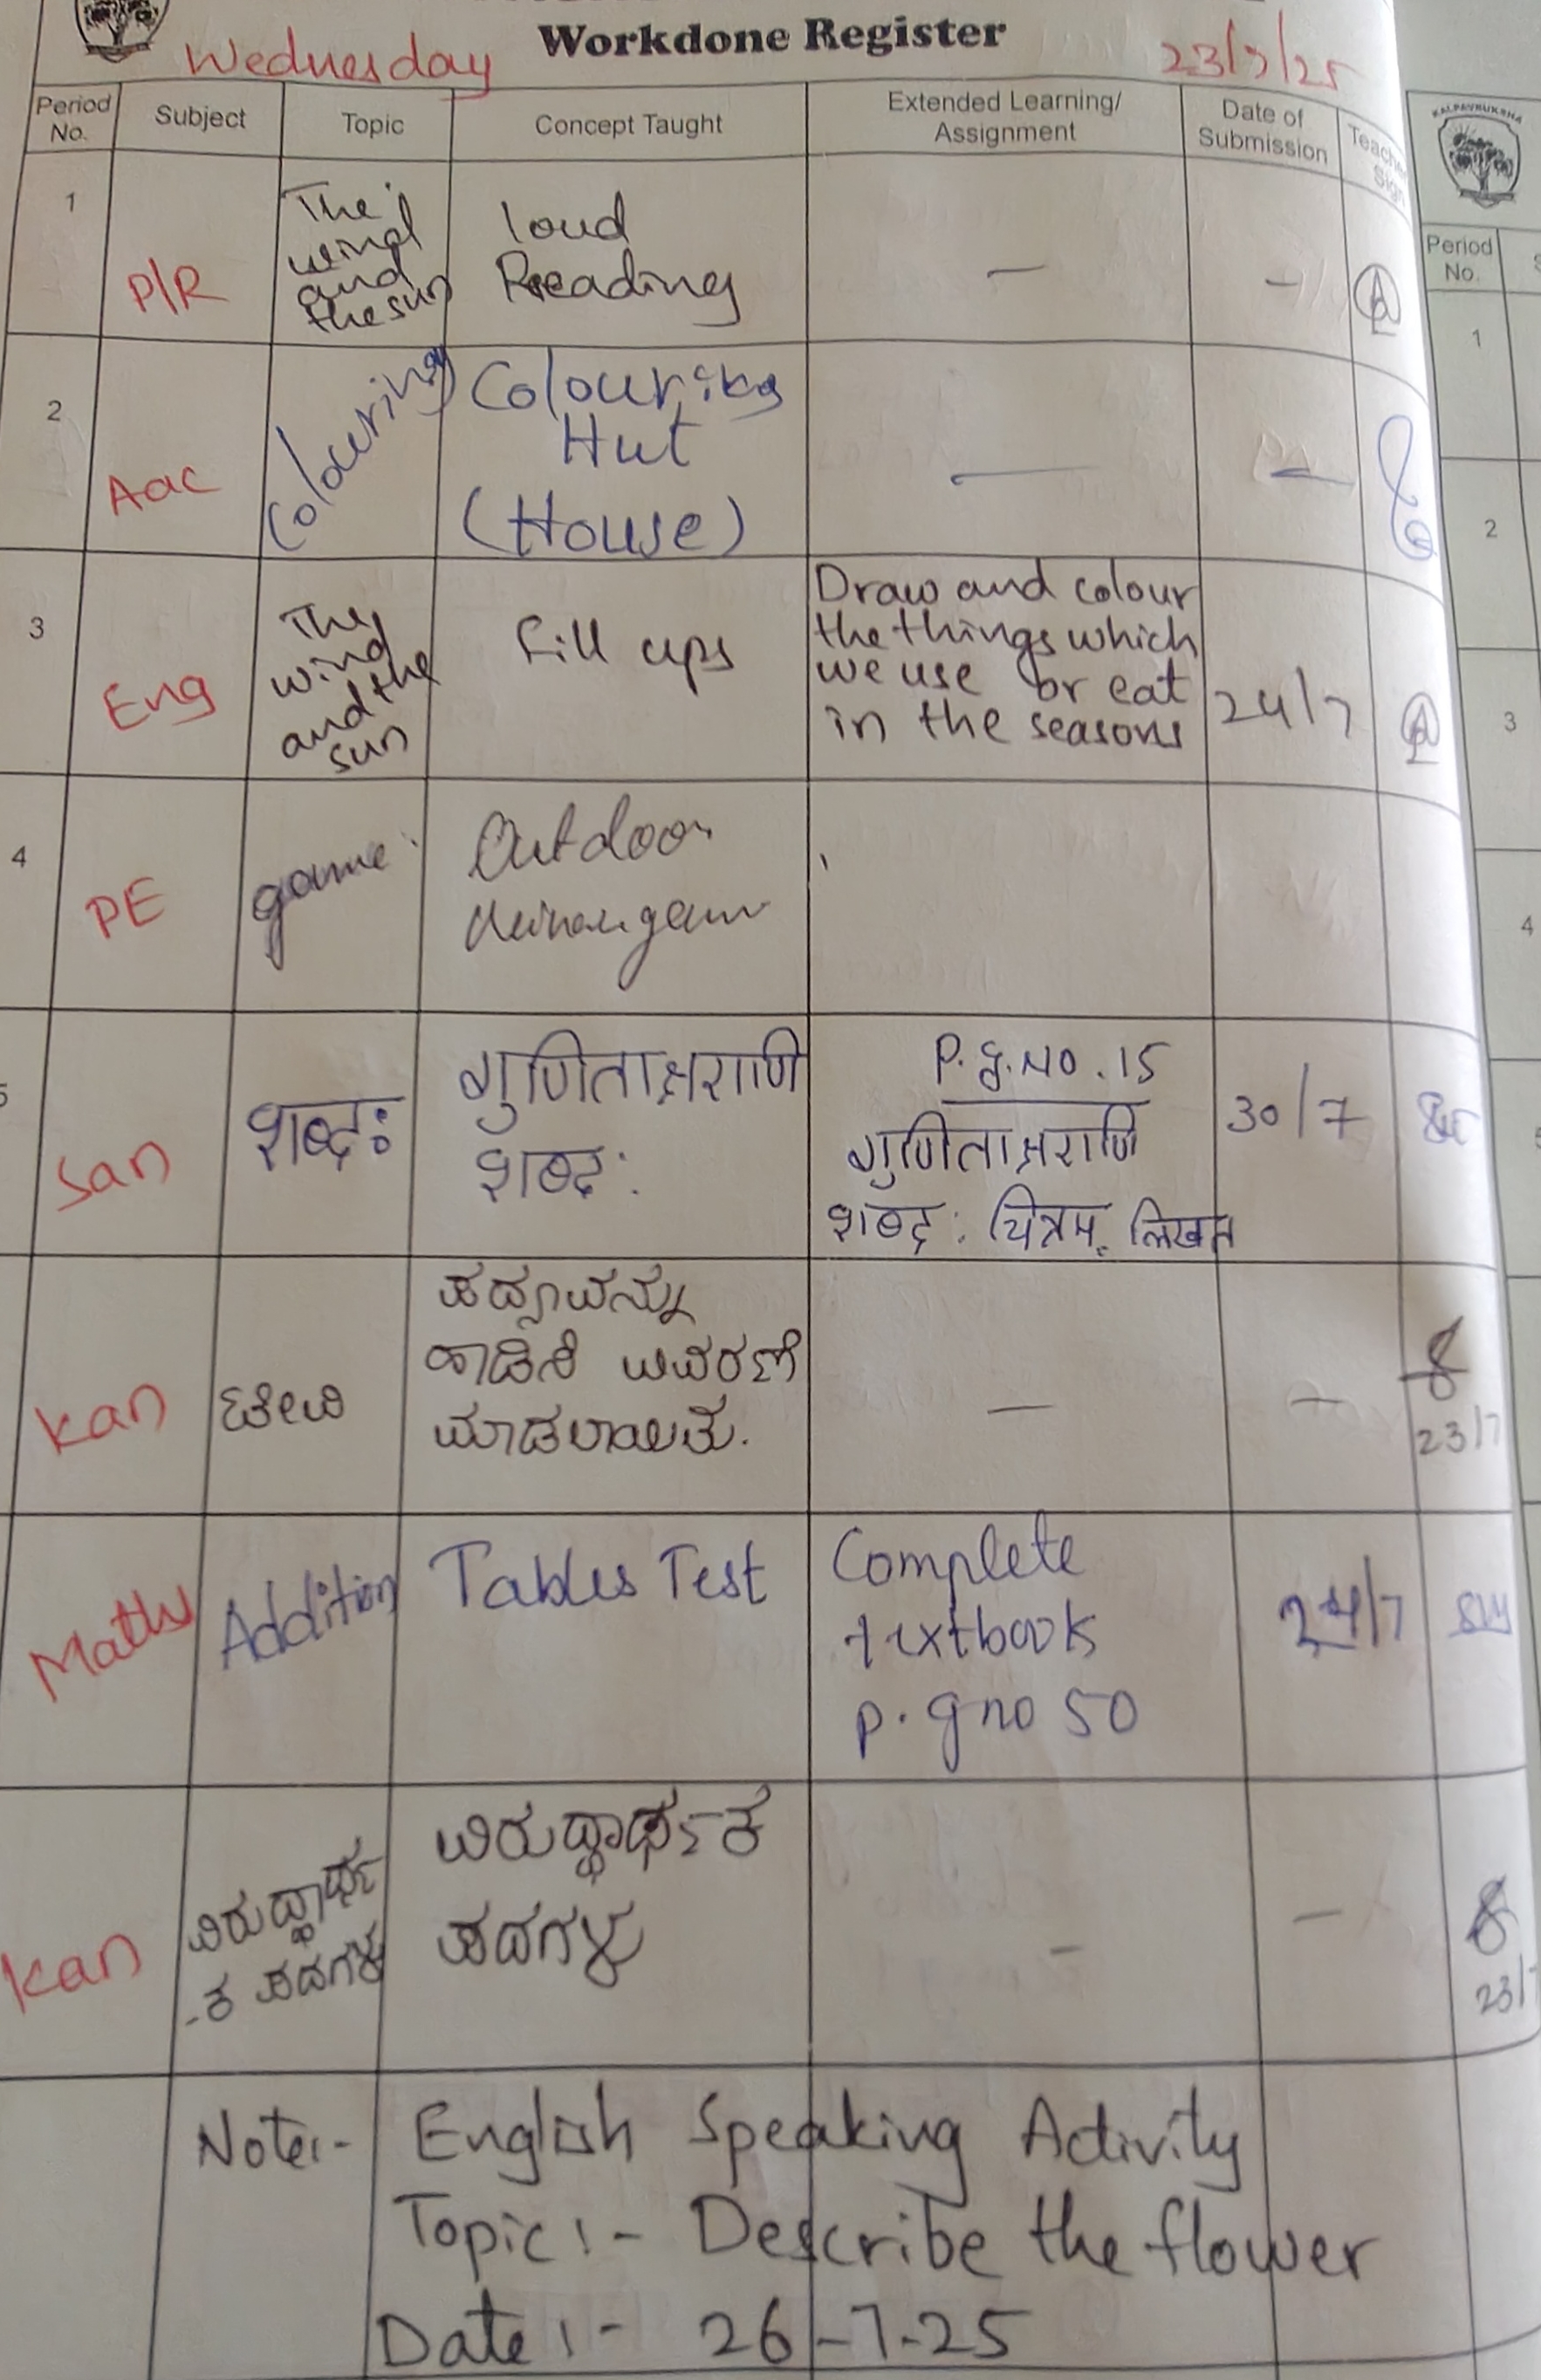 Workdone Register
Wednesday 23/7/25
Period No. Subject Topic Concept Taught Extended Learning/ Assignment Date of Submission
KALPAVRUKSHA
1 P/R The wind and the sun loud Reading — —
2 Aac Colouring Colouring Hut (House) — —
3 Eng The wind and the sun Fill ups Draw and colour the things which we use or eat in the seasons 24/7
4 PE game Outdoor
5 San शब्दः गुणिताक्षराणि शब्दः P.g.No.15 गुणिताक्षराणि शब्दः चित्रम् लिखत 30/7
Kan ಪದ್ಯವನ್ನು ಹಾಡಿಸಿ ವಿವರಣೆ ಮಾಡಲಾಯಿತು. — — 23/7
Maths Addition Tables Test Complete textbook p.g no 50 24/7
Kan ವಿರುದ್ಧಾರ್ಥ -ಕ ಪದಗಳು ವಿರುದ್ಧಾರ್ಥಕ ಪದಗಳು - — 23/
Note:- English Speaking Activity
Topic:- Describe the flower
Date:- 26-7-25
Period No.
1
2
3
4